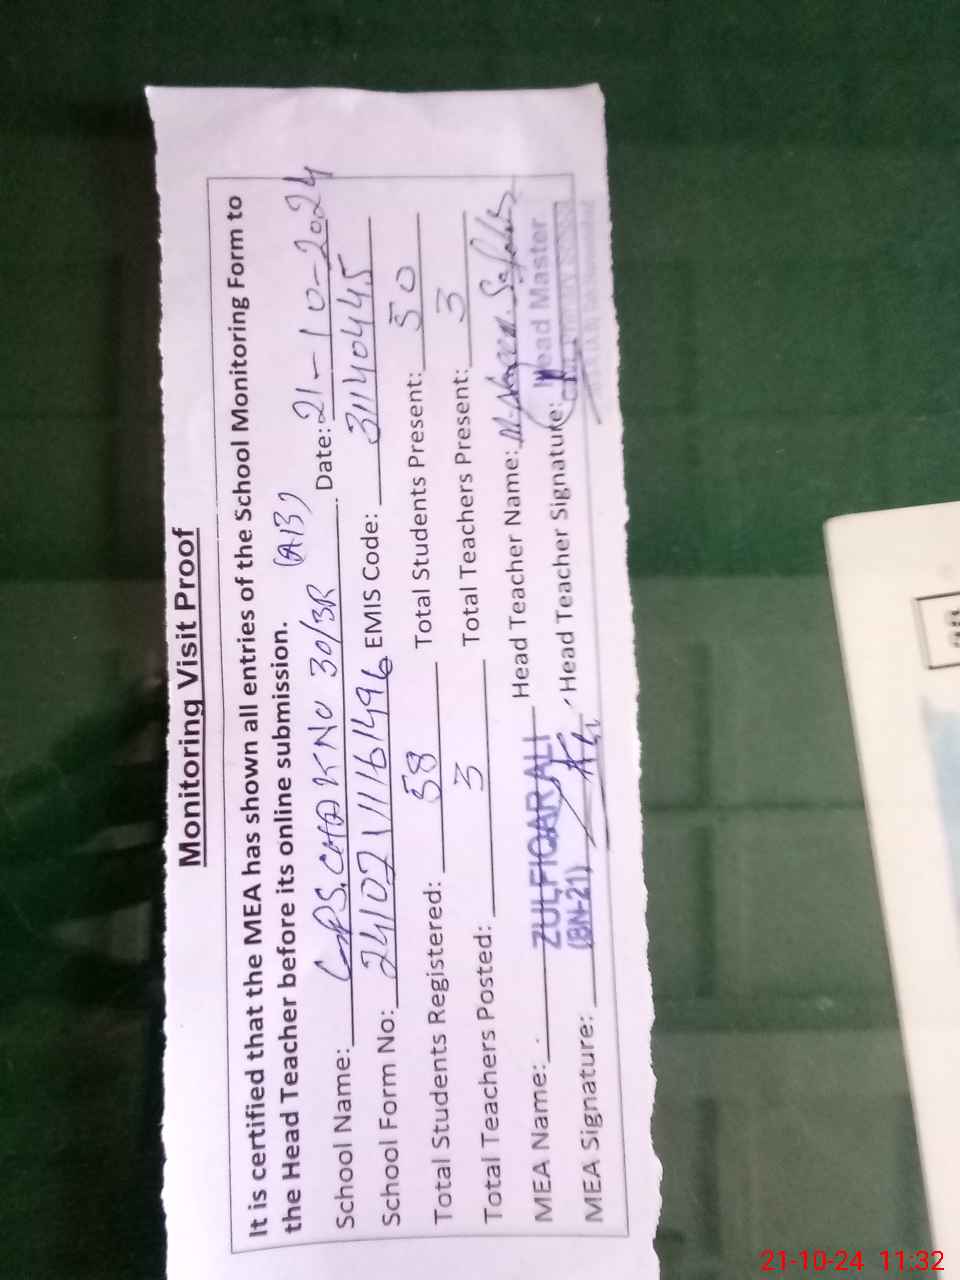 Monitoring Visit Proof
It is certified that the MEA has shown all entries of the School Monitoring Form to
the Head Teacher before its online submission.
School Name: GPS. CHAK NO 30/3R (A13) Date: 21-10-2024
School Form No: EMIS Code: 31140445
Total Students Registered: 58 Total Students Present: 50
Total Teachers Posted: 3 Total Teachers Present: 3
MEA Name: ZULFIQAR ALI Head Teacher Name:
(BN-21)
MEA Signature: Head Teacher Signature: Head Master
21-10-24 11:32